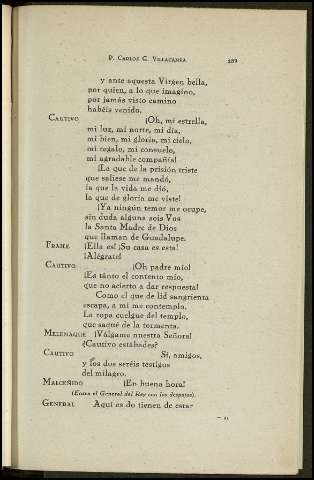 P. CARLOS G. VILLACAMPA
y ante aquesta Virgen bella,
por quien, a lo que imagino,
por jamás visto camino
habéis venido.
CAUTIVO ¡Oh, mi estrella,
mi luz, mi norte, mi día,
mi bien, mi gloria, mi cielo,
mi regalo, mi consuelo,
mi agradable compañía!
¡La que de la prisión triste
que saliese me mandó,
la que la vida me dió,
la que de gloria me viste!
¡Ya ningún temor me ocupe,
sin duda alguna sois Vos
la Santa Madre de Dios
que llaman de Guadalupe.
FRAILE ¡Ella es! ¡Su casa es esta!
¡Alégrate!
CAUTIVO ¡Oh padre mío!
¡Es tanto el contento mío,
que no acierto a dar respuesta!
Como el que de lid sangrienta
escapa, a mí me contemplo.
La ropa cuelgue del templo,
que saqué de la tormenta.
MELENAQUE ¡Válgame nuestra Señora!
¿Cautivo estábades?
CAUTIVO Sí, amigos,
y los dos seréis testigos
del milagro.
MALCEÑIDO ¡En buena hora!
(Entra el General del Rey con los despojos).
GENERAL Aquí es do tienen de estar